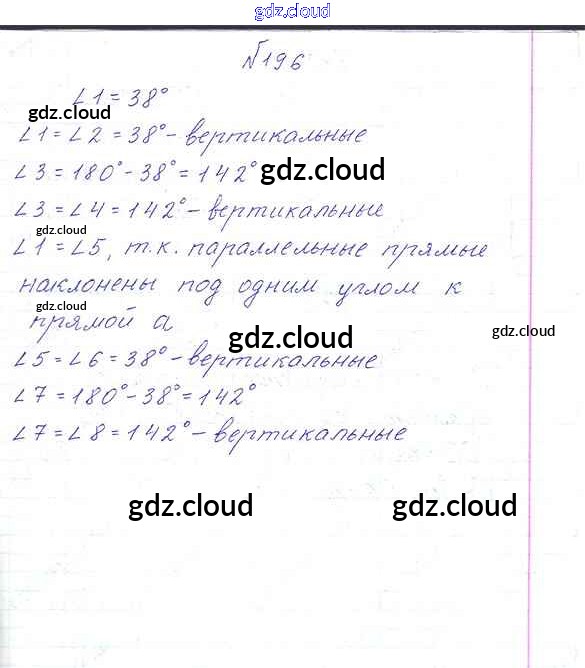 gdz.cloud
№196
∠1 = 38°
gdz.cloud
∠1 = ∠2 = 38° - вертикальные
∠3 = 180° - 38° = 142° gdz.cloud
∠3 = ∠4 = 142° - вертикальные
gdz.cloud
∠1 = ∠5, т.к. параллельные прямые
наклонены под одним углом к
gdz.cloud
прямой a
gdz.cloud gdz.cloud
∠5 = ∠6 = 38° - вертикальные
∠7 = 180° - 38° = 142°
∠7 = ∠8 = 142° - вертикальные
gdz.cloud gdz.cloud